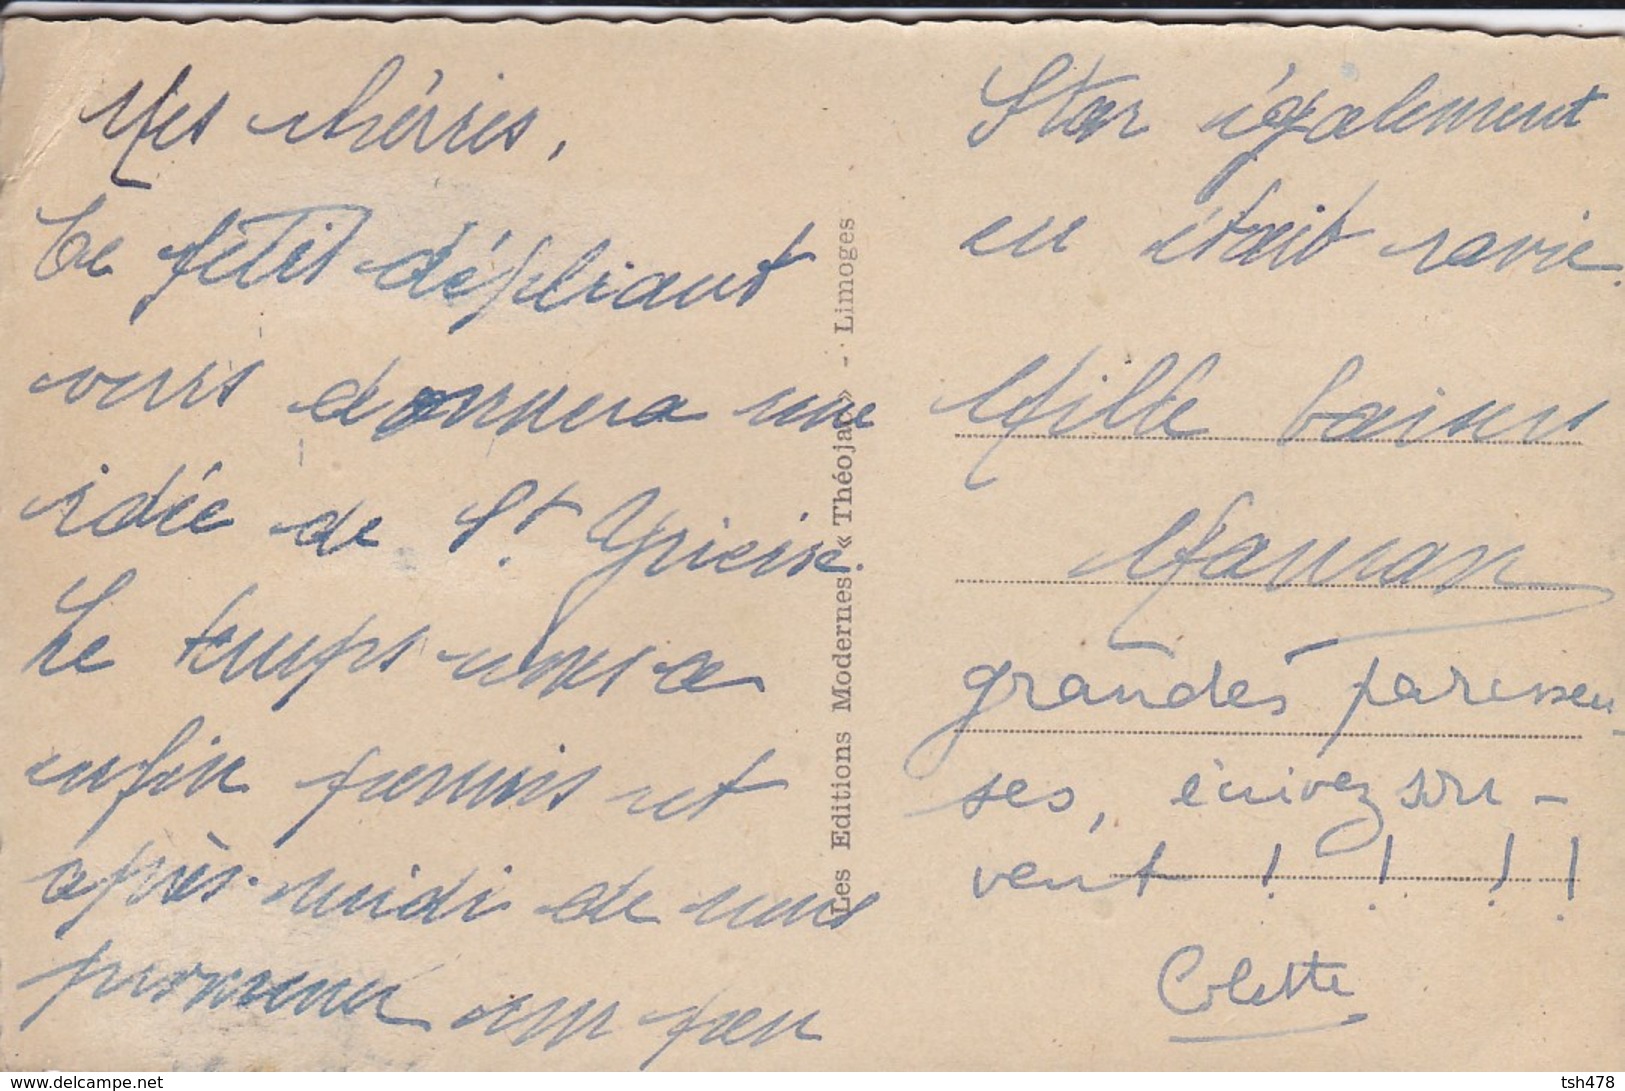 Mes chéries,
Ce petit dépliant
vous donnera une
idée de St. Yrieix.
Le temps nous a
enfin permis cet
après-midi de nous
promener un peu
Star également
en était ravie.
Mille baisers
Maman
grandes paresseu-
ses, écrivez sou-
vent ! ! ! !
Colette
Les Editions Modernes « Théojac » - Limoges
www.delcampe.net
tsh478